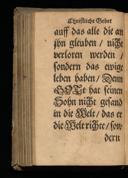 Christliche Gebet
auff das alle die an
jhn gleuben / nicht
verloren werden /
sondern das ewige
leben haben / Denn
GOTt hat seinen
Sohn nicht gesand
in die Welt / das er
die Welt richte / son-
dern